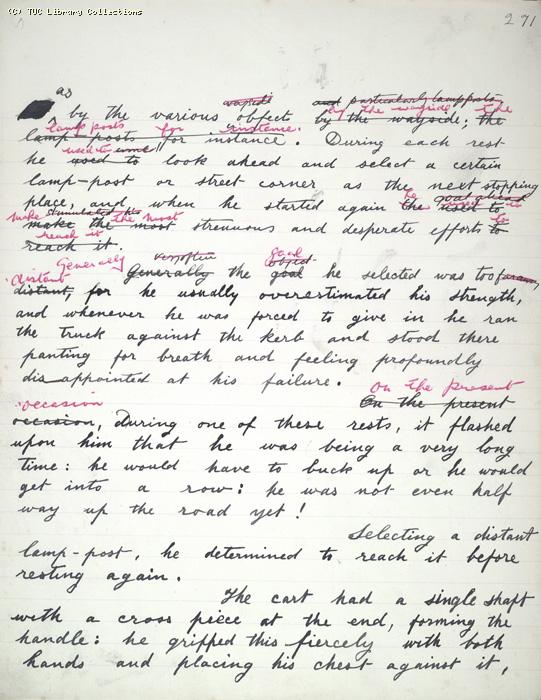 (c) TUC Library Collections
271
as and particularly lamp posts
by the various objects by the wayside; the
by the wayside the
lamp posts for instance.
lamp-posts for instance. During each rest
used to
he used to look ahead and select a certain
lamp-post or street corner as the next stopping
place, and when he started again he used to
make the most
make the most strenuous and desperate efforts to
reach it
reach it.
Generally very often goal object
distant Generally the goal he selected was too far away,
distant, for he usually overestimated his strength,
and whenever he was forced to give in he ran
the truck against the kerb and stood there
panting for breath and feeling profoundly
disappointed at his failure.
On the present
occasion On the present
occasion, During one of these rests, it flashed
upon him that he was being a very long
time: he would have to buck up or he would
get into a row: he was not even half
way up the road yet!
Selecting a distant
lamp-post, he determined to reach it before
resting again.
The cart had a single shaft
with a cross piece at the end, forming the
handle: he gripped this fiercely with both
hands and placing his chest against it,